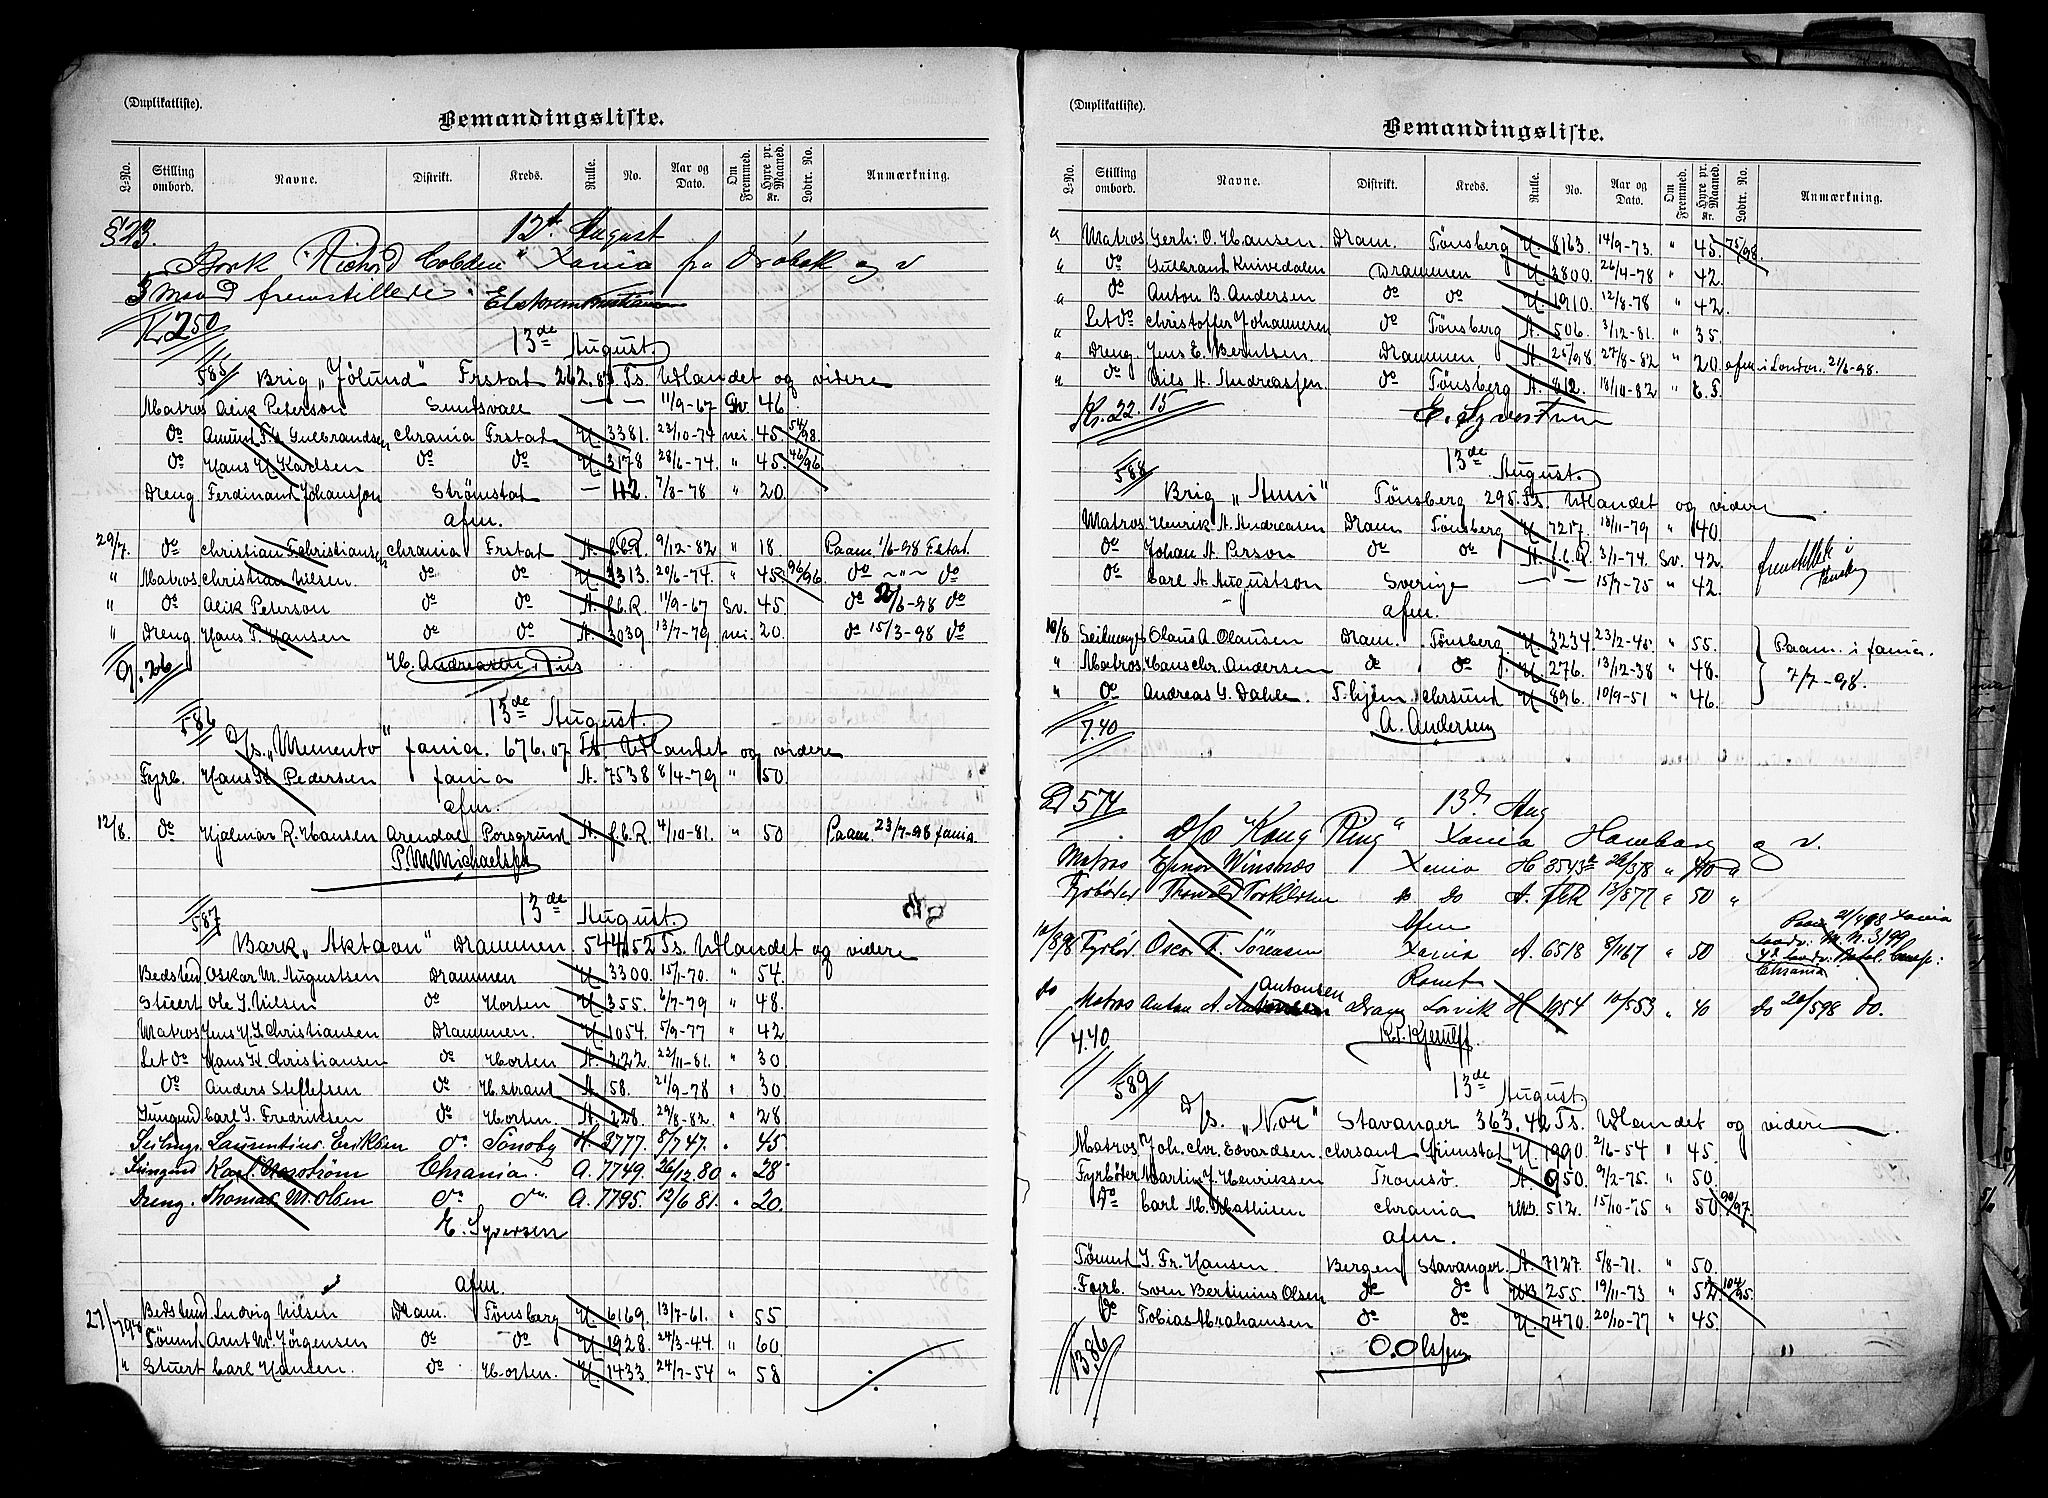 (Duplikatliste).
Bemandingsliste.
L-No. Stilling ombord. Navne. Distrikt. Kreds. Rulle. No. Aar og Dato. Om Fremmed. Hyre pr. Maaned. Kr. Lodtr. No. Anmærkning.
12te August
Bark "Richard Cobden" Xania fra Drøbak og v
3 Mand fremstillede
K. 2.50
13de August.
585 Brig „Jølund" Frstat 262.87 Ts. Udlandet og videre
Matros Alik Peterson Sundsvall — — 11/9-67 Sv 46
do Amund F. Gulbrandsen Chrania Frstat U. 3381. 23/10-74 nei. 45. 54/98.
do Hans H. Karlsen do do U. 3178 28/6-74. " 45. 46/96
Dreng Ferdinant Johansson Strømstat — 42. 7/8-78 " 20.
afm.
29/7. do Christian F. Christiansen Chrania Frstat A. f.C.R. 9/12-82 " 18 Paam. 1/6-98 Fstat.
" Matros Christian Nilsen do do U. 3313. 20/6-74. " 45. 96/96 do — " — do
" do Alik Peterson do do A. f.C.R. 11/9-67 Sv. 45. do 20/6-98 do
" Dreng Hans P. Hansen do do A. 3039 13/7-79 nei. 20. do 15/3-98 do
9.26 H. Andreasen
586 13de August.
D/s. „Memento" Xania. 676.07 Ts. Udlandet og videre
Fyrb. Hans H. Pedersen Xania A. 7538 8/4-79 " 50
afm.
12/8. do Hjalmar R. Hansen Arendal Porsgrund A. f.C.R. 4/10-81. " 50 Paam. 23/7-98 Xania.
P. M. Michaelsen
587 13de August.
Bark „Aktæon" Drammen. 544.52 Ts. Udlandet og videre
Bedstmd Oskar M. Augustsen Drammen U. 3300. 15/1-70. " 54.
Stuert Ole J. Nilsen do Horten U. 355. 6/7-79 " 48.
Matros Jens H. J. Christiansen Drammen. U. 1054. 5/9-77 " 42
Let do Hans K. Christiansen do Horten A. 222. 22/11-81. " 30
do Anders Steffesen do H. strand A. 58. 21/9-78 " 30.
Jungmd Carl J. Fredriksen do Horten. A. 228. 29/8-82. " 28
Seilmgr. Laurentius Eriksen do. Tønsbg H. 2777. 5/7 47. " 45.
Jungmd Karl Chrania. A. 7749. 26/12 80 " 28
Dreng. Thomas M. Olsen do. do. A. 7795. 12/6 81. " 20.
E. Syversen
afm.
27/7 98 Bedstmd Ludvig Nilsen Dram. Tønsberg U. 6169. 13/7-61. " 55
" Tømmd Arnt M. Jørgensen do do U. 1928. 24/3-44. " 60.
" Stuert Carl Hansen. do Horten. U. 1433. 24/7-54 " 58
(Duplikatliste).
Bemandingsliste.
L-No. Stilling ombord. Navne. Distrikt. Kreds. Rulle. No. Aar og Dato. Om Fremmed. Hyre pr. Maaned. Kr. Lodtr. No. Anmærkning.
" Matros Gerh: O. Hansen. Dram. Tønsberg U. 8163. 14/9-73. " 45. 75/98.
" do Gulbrant Knivedalen Drammen U. 3800. 26/4-78 " 42.
" do Anton B. Andersen do do U. 1910. 12/8-78 " 42.
" Let do Christoffer Johannesen do Tønsberg A. 506. 3/12-81. " 35.
" Dreng. Jens E. Berntsen. Drammen A. 25/98. 27/8-82 " 20 afm. i London. 21/6-98.
" do Nils A. Andreassen. do Tønsberg A. 812. 18/10-82 "
Kr. 22.15 E. Syvertsen
588 13de August.
Brig „Anni" Tønsberg 295. Ts. Udlandet og videre
Matros Henrik A. Andreasen Dram Tønsberg U. 7217 18/11-79 " 40.
do Johan A. Person do do A. f.C.R. 3/1-74. Sv. 42. fremstillet i
do Carl A. Augustson Sverige — — 15/7-75 " 42.
afm.
10/8 Seilmager Olaus A. Olausen Dram. Tønsberg. U. 3234. 23/2-45. " 55. Paam. i Xania.
" Matros Hans Chr. Andersen do do U. 276. 13/12-38 " 48. 7/7-98.
" do Andreas G. Dahle T.hjem Chrsund U. 896. 10/9-51 " 46.
7.40 A. Andersen
D 574 13de Aug
D/s "Kong Ring" Xania Hamburg og v.
Matros Winsnes Xania H 3543 " 40 "
Fyrbøder Thorvald Torkildsen do do A. fCR 13/8 77 " 50 "
Afm
10/8 98 Fyrbød. Oscar F. Sørensen Xania A. 6518 8/11 67 " 50 Paam 21/4 98 Xania
Chrania
Romt
do Matros Anton A. Antonsen Dram Larvik H 1954 10/5 53 " 40 do 20/5 98 do.
4.40 Kjerulff
589 13de August
D/s. „Nor" Stavanger 363.42 Ts. Udlandet og videre
Matros Joh. Chr. Edvardsen. Chrsant Grimstat U. 1990. 2/6-54 " 45.
Fyrbøter Martin J. Henriksen Tromsø. A. 950. 9/2-75. " 50.
do Carl M. Mathisen Chrania UB. 512. 15/10-75 " 50 90/97.
afm.
Tømmd J. Fr. Hansen. Bergen Stavanger. A. 7127. 5/8-71. " 50.
Fyrb. Sven Bertinius Olsen do do UB. 255. 19/11-73 " 52 104/95.
do Tobias Abrahamsen do do U. 7470. 20/10-77 " 45.
13.86 O. Olssen "